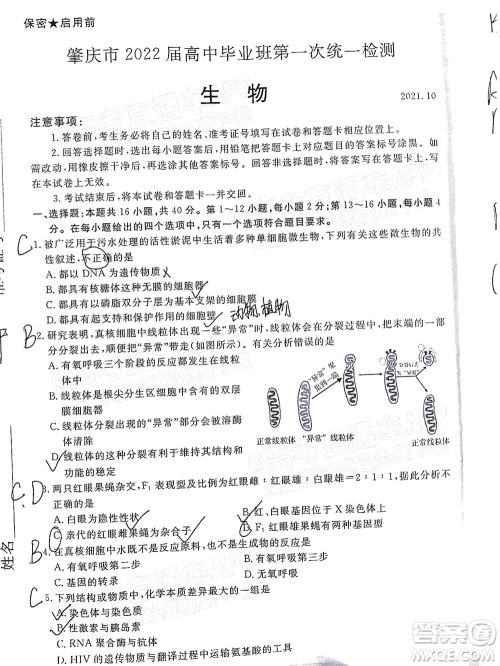 保密★启用前
肇庆市 2022 届高中毕业班第一次统一检测
生 物
2021.10
注意事项：
1. 答卷前，考生务必将自己的姓名、准考证号填写在试卷和答题卡相应位置上。
2. 回答选择题时，选出每小题答案后，用铅笔把答题卡上对应题目的答案标号涂黑。如
需改动，用橡皮擦干净后，再选涂其他答案标号。回答非选择题时，将答案写在答题卡上。写
在本试卷上无效。
3. 考试结束后，将本试卷和答题卡一并交回。
一、选择题：本题共 16 小题，共 40 分。第 1～12 小题，每小题 2 分；第 13～16 小题，每小题 4
分。在每小题给出的四个选项中，只有一个选项符合题目要求。
C 1. 被广泛用于污水处理的活性淤泥中生活着多种单细胞微生物，下列有关这些微生物的共
性叙述，不正确的是
A. 都以 DNA 为遗传物质
B. 都有无膜的细胞器
C. 都以磷脂双分子层为基本支架的细胞膜
D. 都有支持和保护作用的细胞壁
动物、植物
B 2. 研究表明，真核细胞中线粒体出现一些“异常”时，线粒体会在分裂过程中，把末端的一部
分分裂出去，顺便把“异常”带走（如图）。有关分析错误的是
A. 有氧呼吸三个阶段的反应都发生在线
粒体中
B. 线粒体是根尖分生区细胞中含有的双层
膜细胞器
C. 线粒体分裂出现的“异常”部分会被溶酶
体清除
D. 线粒体的这种分裂有利于维持其结构
与功能的稳定
“异常”聚
集到一端
分裂
正常线粒体 “异常”线粒体
正常线粒体
C. D 3. 两只红眼果蝇杂交，F₁ 表现型及比例为红眼雌∶红眼雄∶白眼雄＝2∶1∶1，据此分析不
正确的是
A. 白眼为隐性性状
B. 红、白眼基因位于 X 染色体上
C. 亲代的红眼雌果蝇为杂合子
B 4. 在真核细胞中水既不是反应原料，也不是生成物的反应是
A. 有氧呼吸第二步
B. 有氧呼吸第一步
C. 基因的转录
D. 核糖体上进行的翻译
C 5. 下列结构或物质中，化学本质差异最大的一组是
A. 染色体与染色质
B. 性激素与胰岛素
C. 赤霉素与生长素
D. HIV 的遗传物质与翻译过程中运输氨基酸的工具
姓名